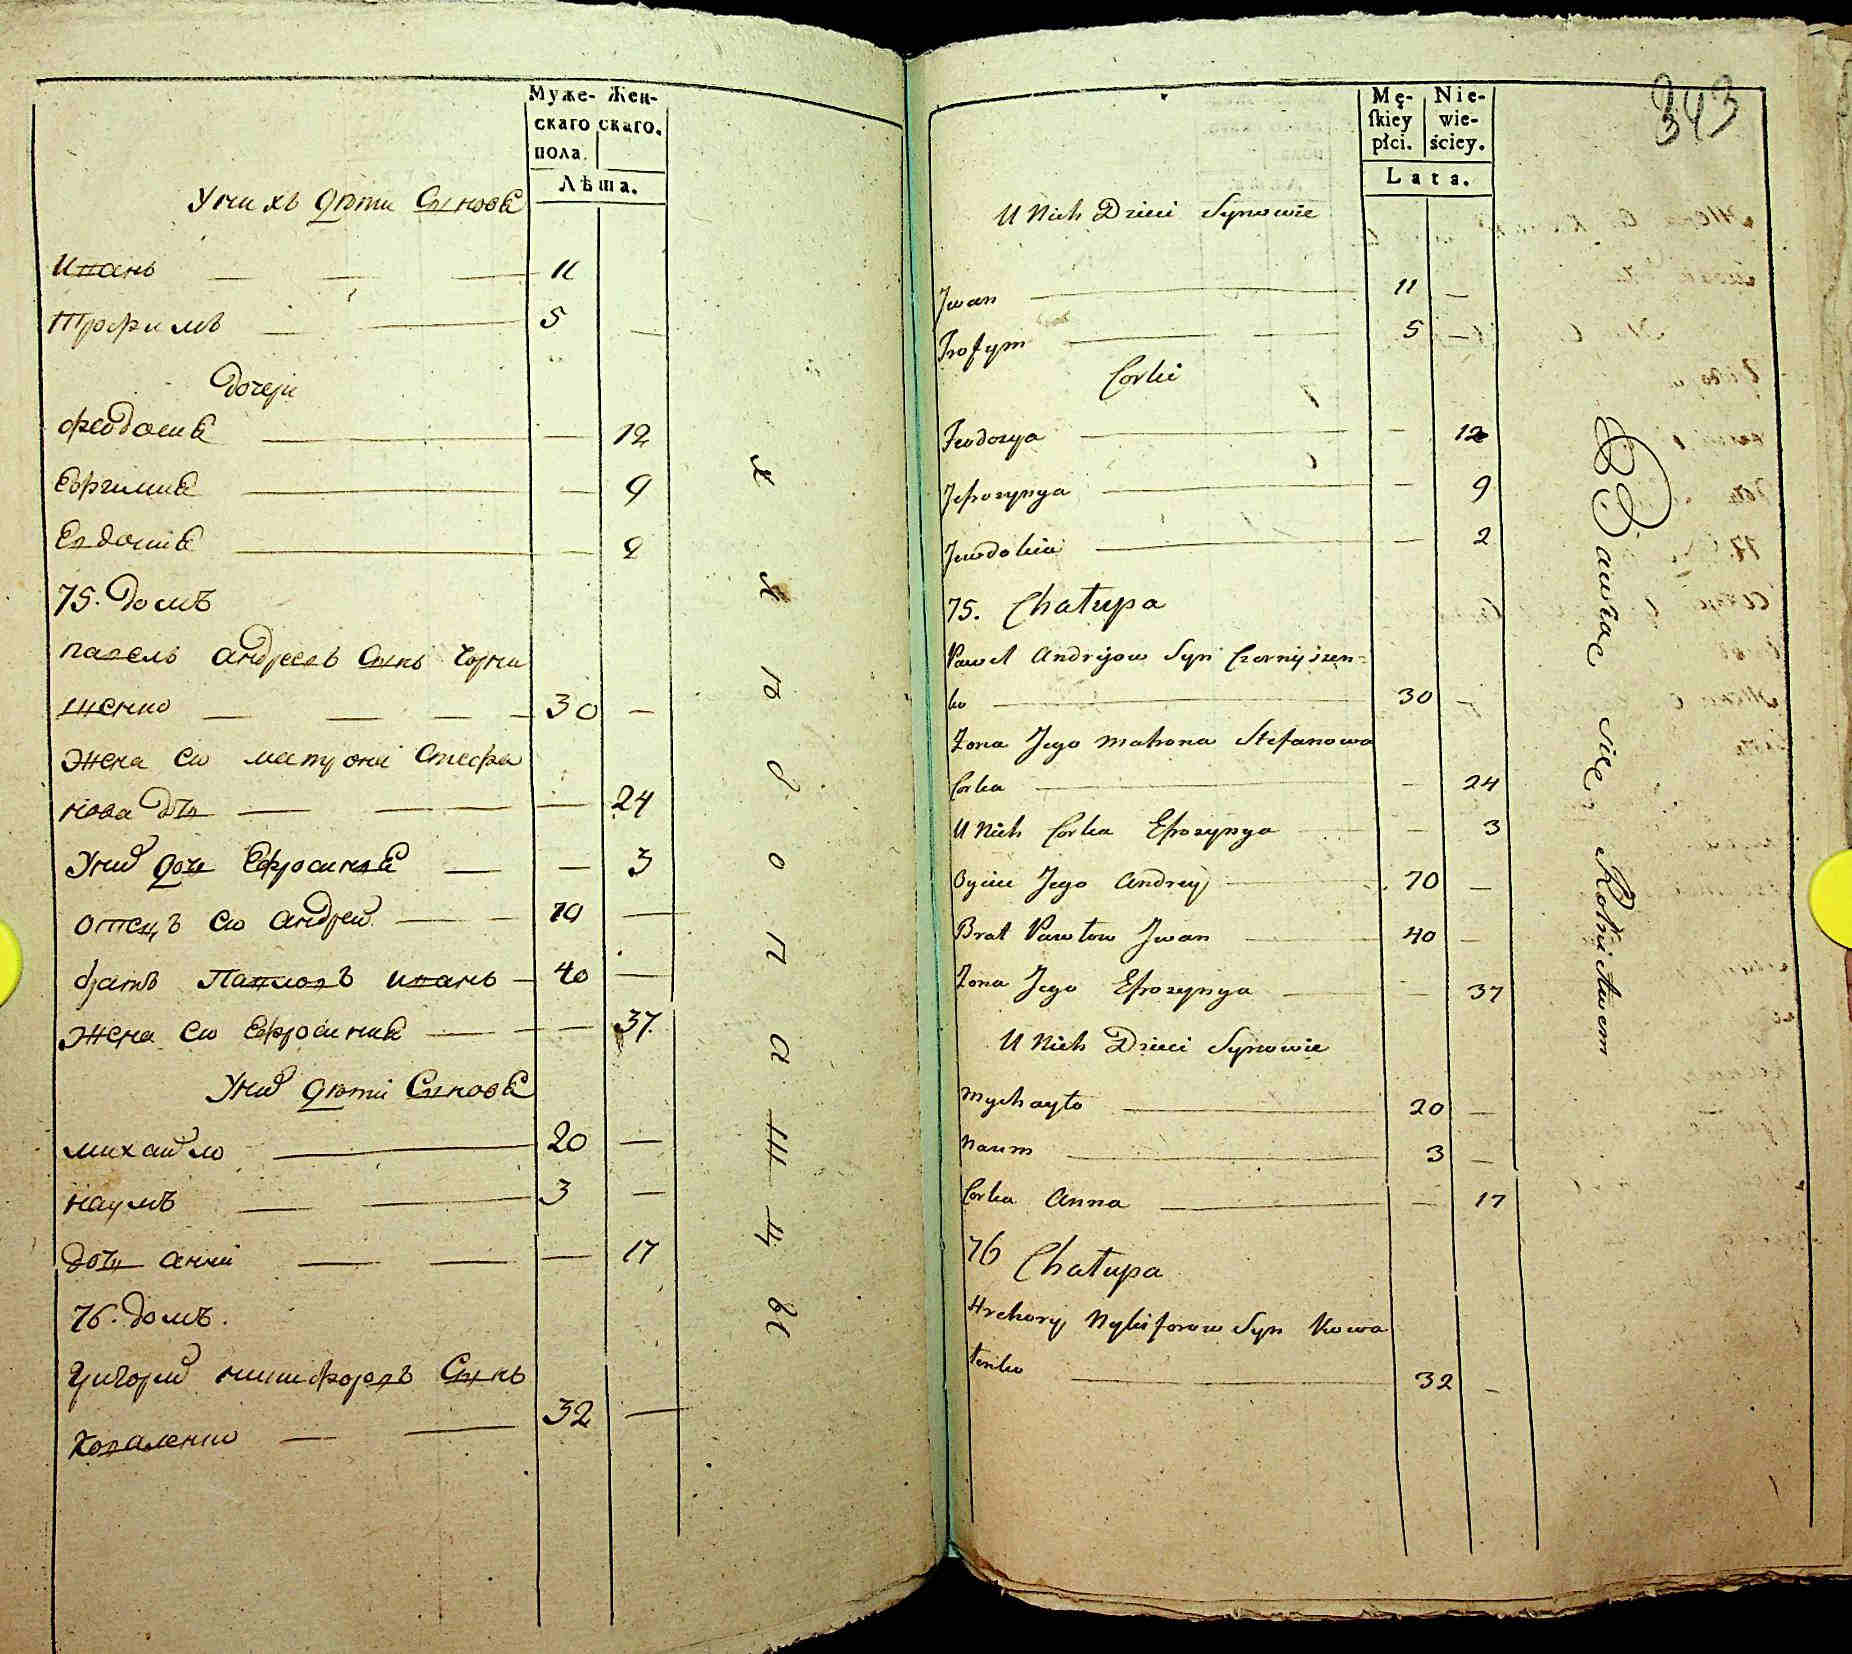 Муже- Жен-
скаго скаго.
пола.
Лѣта.
У нихъ дѣти Сыновѣ
Иванъ 11
Трофимъ 5
дочери
Феодосия 12
9
Евдокия 2
75. домъ
павелъ андреевъ Сынъ Черни
шенко 30
жена его матрона Стефа
нова дочь 24
У них дочь Ефросиния 3
отецъ его андрей 70
братъ Павловъ иванъ 40
жена его Ефросиния 37
У них дѣти Сыновѣ
михайло 20
наумъ 3
дочь анна 17
76. домъ.
Григорий никифоровъ Сынъ
Коваленко 32
хлѣбопашцы
343
Mę- Nie-
ſkiey wie-
płci. ściey.
Lata.
U Nich Dzieci Synowie
Jwan 11
Trofym 5
Corki
Feodosya 12
Jefrozynya 9
Jewdokia 2
75. Chałupa
Paweł Andrijow Syn Czerniszen-
ko 30
Zona Jego Matrona Stefanowa
Corka 24
U Nich Corka Efrozynya 3
Oyciec Jego Andrey 70
Brat Pawłow Jwan 40
Zona Jego Efrozynya 37
U Nich Dzieci Synowie
Mychayło 20
Naum 3
Corka Anna 17
76 Chałupa
Hrehory Nykiforow Syn Kowa
lenko 32
Bawiąc się Rolnictwem